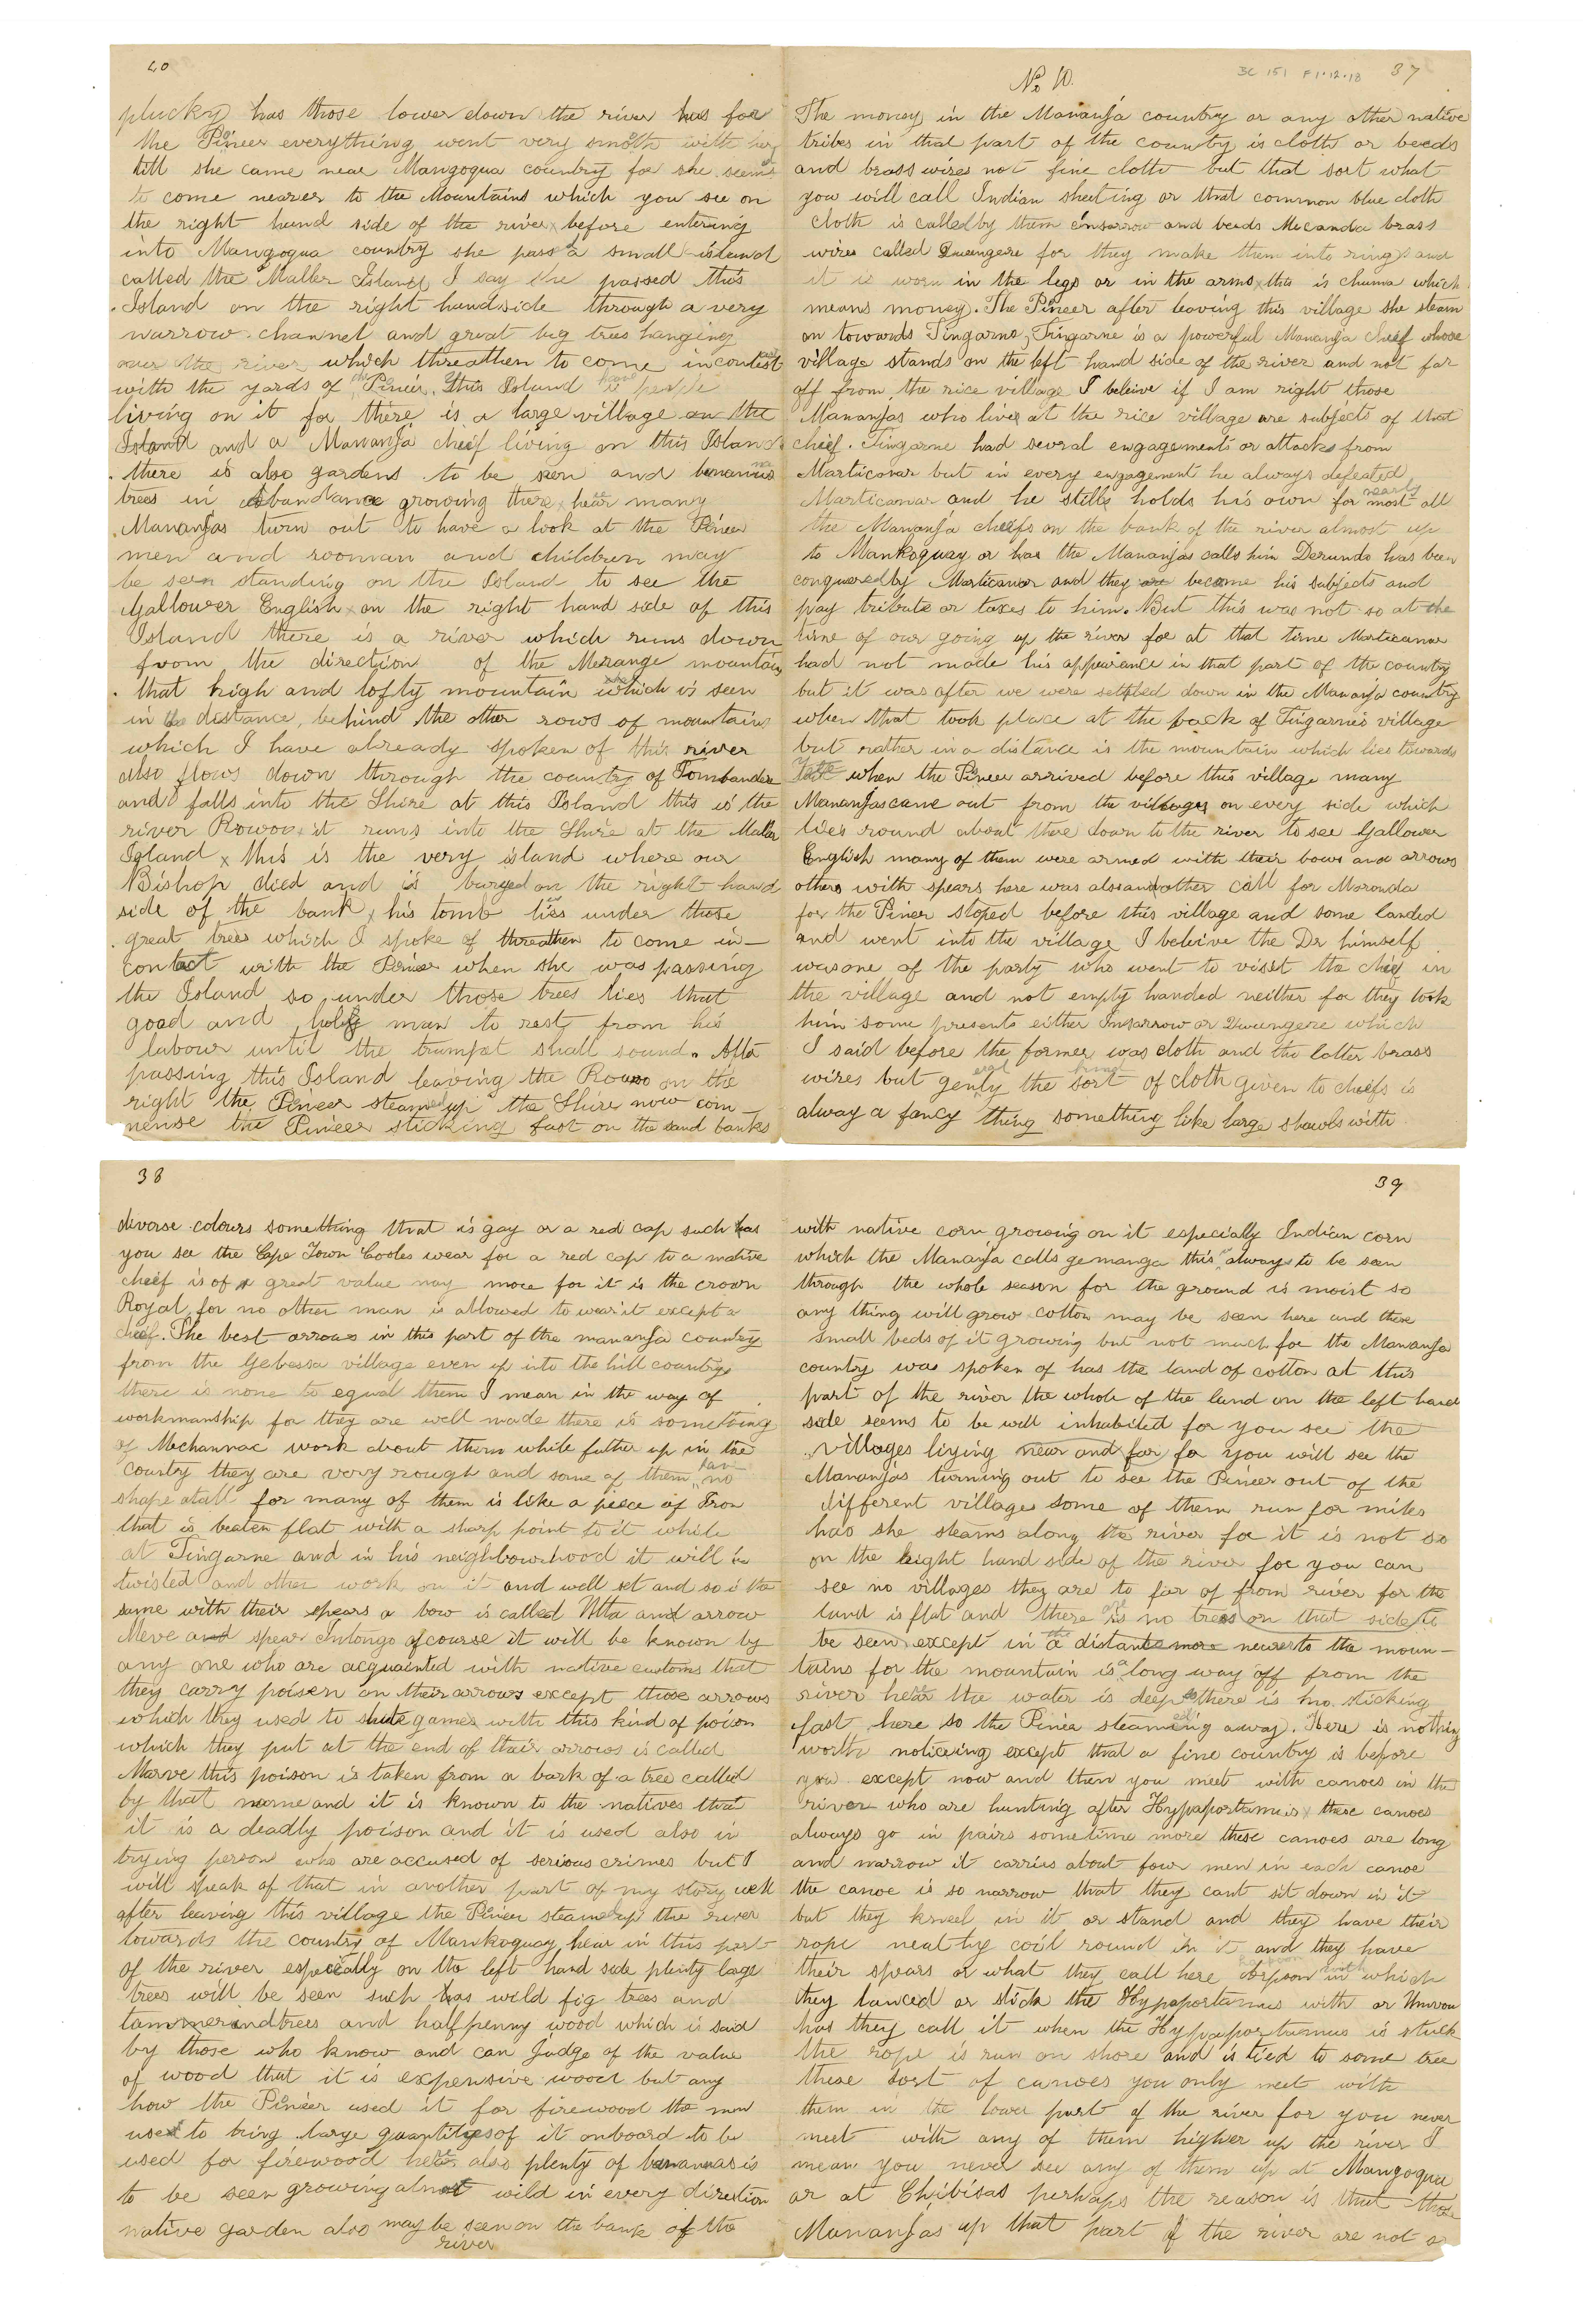 No 10.
BC 151 F1.12.18 37
The money in the Mananja country or any other native
tribes in that part of the country is cloth or beeds
and brass wires not fine cloth but that sort what
you will call Indian sheeting or that common blue cloth
cloth is called by them Insarrow and beads Micanda brass
wires called Quangere for they make them into rings and
it is worn in the legs or in the arms this is chuma which
means money. The Pineer after leaving this village she steam
on towords Tingarne, Tingarne is a powerful Mananja Cheef whose
village stands on the left hand side of the river and not far
off from the rice village I beleive if I am right those
Mananjas who lives at the rice village are subjects of that
cheef. Tingarne had several engagements or attacks from
Marticanar but in every engagement he always defeated
Marticanar and he stills holds his own for nearly most all
the Mananja cheefs on the bank of the river almost up
to Mankoguay or has the Mananjas calls him Derundo has been
conquered by Marticanar and they are become his subjects and
pay tribute or taxes to him. But this was not so at the
time of our going up the river for at that time Marticanar
had not made his appeirence in that part of the country
but it was after we were settled down in the Mananja country
when that took place at the back of Tingarnes village
but rather in a distance is the mountain which lies towards
Tette when the Pineer arrived before this village many
Mananjas came out from the villages on every side which
lies round about there down to the river to see Gallower
English many of them were armed with their bows and arrows
others with spears here was also another call for Moronda
for the Pineer stoped before this village and some landed
and went into the village I beleive the Dr himself
was one of the party who went to visit the cheif in
the village and not empty handed neither for they took
him some presents either Insarrow or Quungere which
I said before the former was cloth and the latter brass
wires but genly the sort of cloth given to cheefs is
alway a fancy thing something like large shawls with
38
diverse colours something that is gay or a red cap such has
you see the Cape Town Cooles wear for a red cap to a native
cheef is of great value nay more for it is the crown
Royal for no other man is allowed to wear it except a
cheef. The best arrows in this part of the mananja country
from the Gebessa village even up into the hill country
there is none to egual them I mean in the way of
workmanship for they are well made there is something
of Mechannac work about them while futher up in the
country they are very rough and some of them have no
shape atall for many of them is like a peece of Iron
that is beaten flat with a sharp point to it while
at Tingarne and in his neighbourhood it will be
twisted and other work on it and well set and so is the
same with their spears a bow is called Utta and arrow
Meve and spear Intongo of course it will be known by
any one who are acquainted with native customs that
they carry poisen on their arrows except those arrows
which they used to shute games with this kind of poison
which they put at the end of their arrows is called
Marve this poison is taken from a bark of a tree called
by that name and it is known to the natives that
it is a deadly poison and it is used also in
trying person who are accused of serious crimes but I
will speak of that in another part of my story well
after leaving this village the Pineer steamed up the river
towards the country of Mankoguay hear in this part
of the river especially on the left hand side plenty lage
trees will be seen such has wild fig trees and
tammerind trees and halfpenny wood which is said
by those who know and can Judge of the value
of wood that it is expensive wood but any
how the Pineer used it for firewood the men
used to bring large quantityes of it onboard to be
used for firewood here also plenty of bananas is
to be seen growing almost wild in every direction
native garden also may be seen on the bank of the
river
39
with native corn growing on it especially Indian corn
which the Mananja calls gemanga this is always to be seen
through the whole season for the ground is moist so
any thing will grow cotton may be seen here and there
small beds of it growing but not much for the Mananja
country was spoken of has the land of cotton at this
part of the river the whole of the land on the left hand
side seems to be well inhabited for you see the
villages liying near and far for you will see the
Mananjas turning out to see the Pineer out of the
different villages some of them run for miles
has she steams along the river for it is not so
on the right hand side of the river for you can
see no villages they are to far of from river for the
land is flat and there are is no trees on that side to
be seen except in the a distant more nearer to the moun-
tains for the mountain is a long way off from the
river hear the water is deep there is no sticking
fast here so the Pineer steaming away. Here is nothing
worth noticeing except that a fine country is before
you except now and then you meet with canoes in the
river who are hunting after Hypapartamus these canoes
always go in pairs sometime more these canoes are long
and narrow it carries about four men in each canoe
the canoe is so narrow that they cant sit down in it
but they kneel in it or stand and they have their
rope neathy coil round in it and they have
their spears or what they call here Arpoon with which
they lanced or stick the Hypapartamus with or Umvou
has they call it when the Hypapartamus is stuck
the rope is run on shore and is tied to some tree
these sort of canoes you only meet with
them in the lower part of the river for you never
meet with any of them higher up the river I
mean you never see any of them up at Mangogua
or at Chibisas perhaps the reason is that those
Mananjas up that part of the river are not so
40
plucky has those lower down the river has for
the Pineer everything went very smoth with her
till she came near Mangoqua country for she seems
to come nearer to the Mountains which you see on
the right hand side of the river before entering
into Mangoqua country she pass a small island
called the Maller Island I say she passed this
Island on the right handside through a very
narrow channel and great big trees hanging
over the river which threathen to come in contact
with the yards of the Pineer. This Island have people
living on it for there is a large village on the
Island and a Mananja cheif living on this Island
there is also gardens to be seen and bananas
trees in abandance growing there hear many
Mananjas turn out to have a look at the Pineer
men and wooman and children may
be seen standing on the Island to see the
Gallower English on the right hand side of this
Island there is a river which runs down
from the direction of the Merange mountain
that high and lofty mountain which is seen
in the distance, behind the other rows of mountains
which I have already spoken of this river
also flows down through the country of Tombandere
and falls into the Shire at this Island this is the
river Rowou it runs into the Shire at the Maller
Island x this is the very island where our
Bishop died and is buryed on the right hand
side of the bank, his tomb lies under those
great trees which I spoke of threathen to come in-
contact with the Pineer when she was passing
the Island so under those trees lies that
good and holy man to rest from his
labour until the trumpet shall sound. After
passing this Island leaving the Rouo on the
right the Pineer steamed up the Shire now com-
mense the Pineer sticking fast on the sand banks